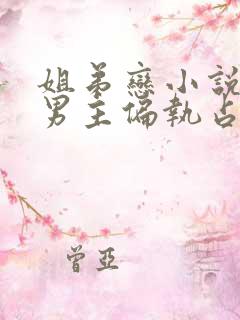 姐弟戀小說
男主偏執占
曾亞